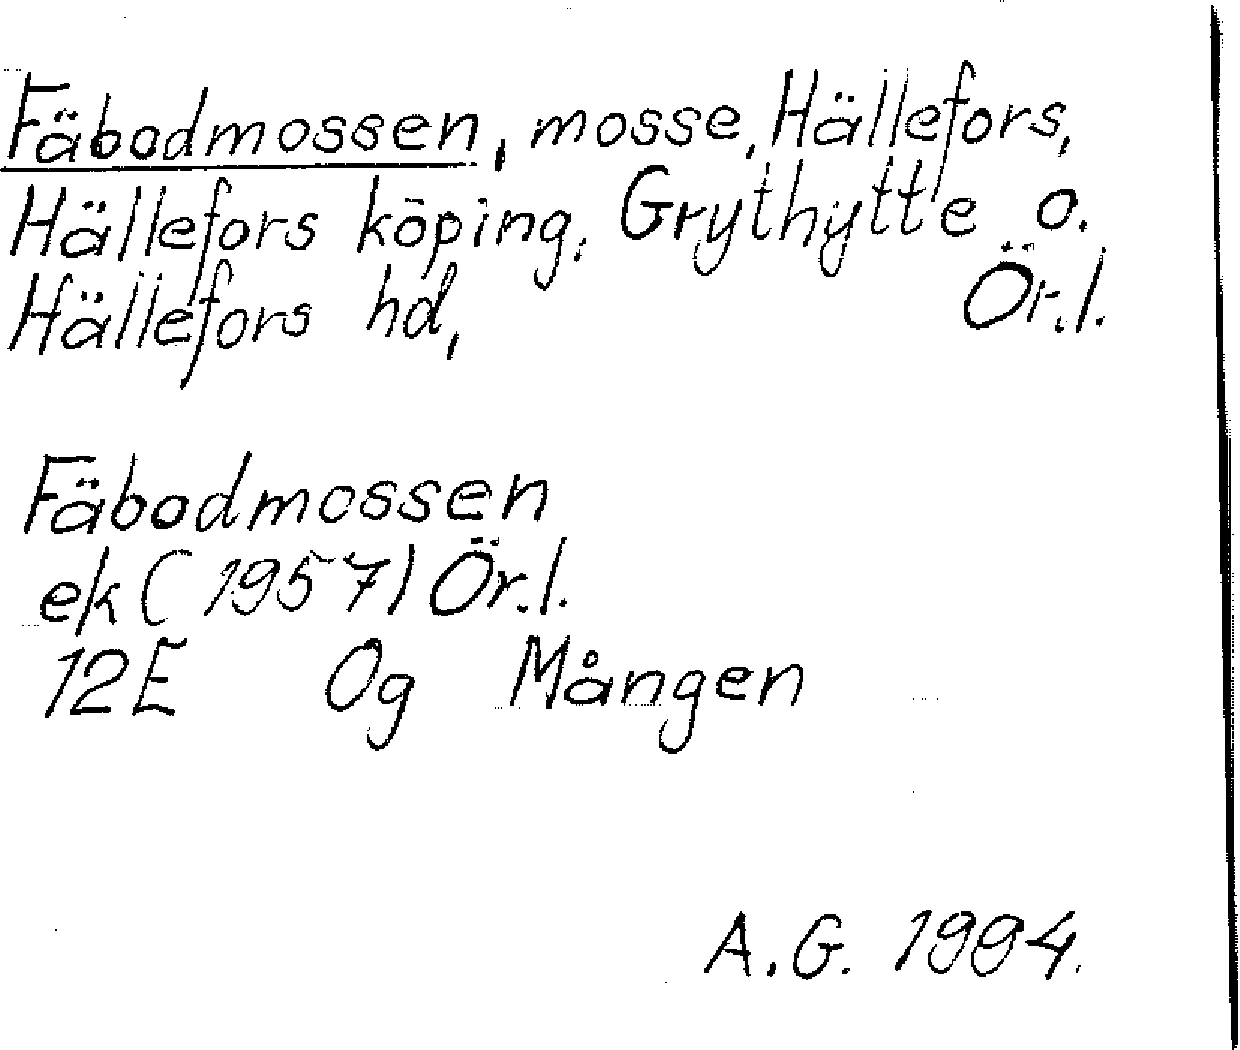 Fäbodmossen, mosse, Hällefors,
Hällefors köping, Grythytte o.
Hällefors hd, Ör.l.
Fäbodmossen
ek (1957) Ör.l.
12E 0g Mången
A.G. 1994.